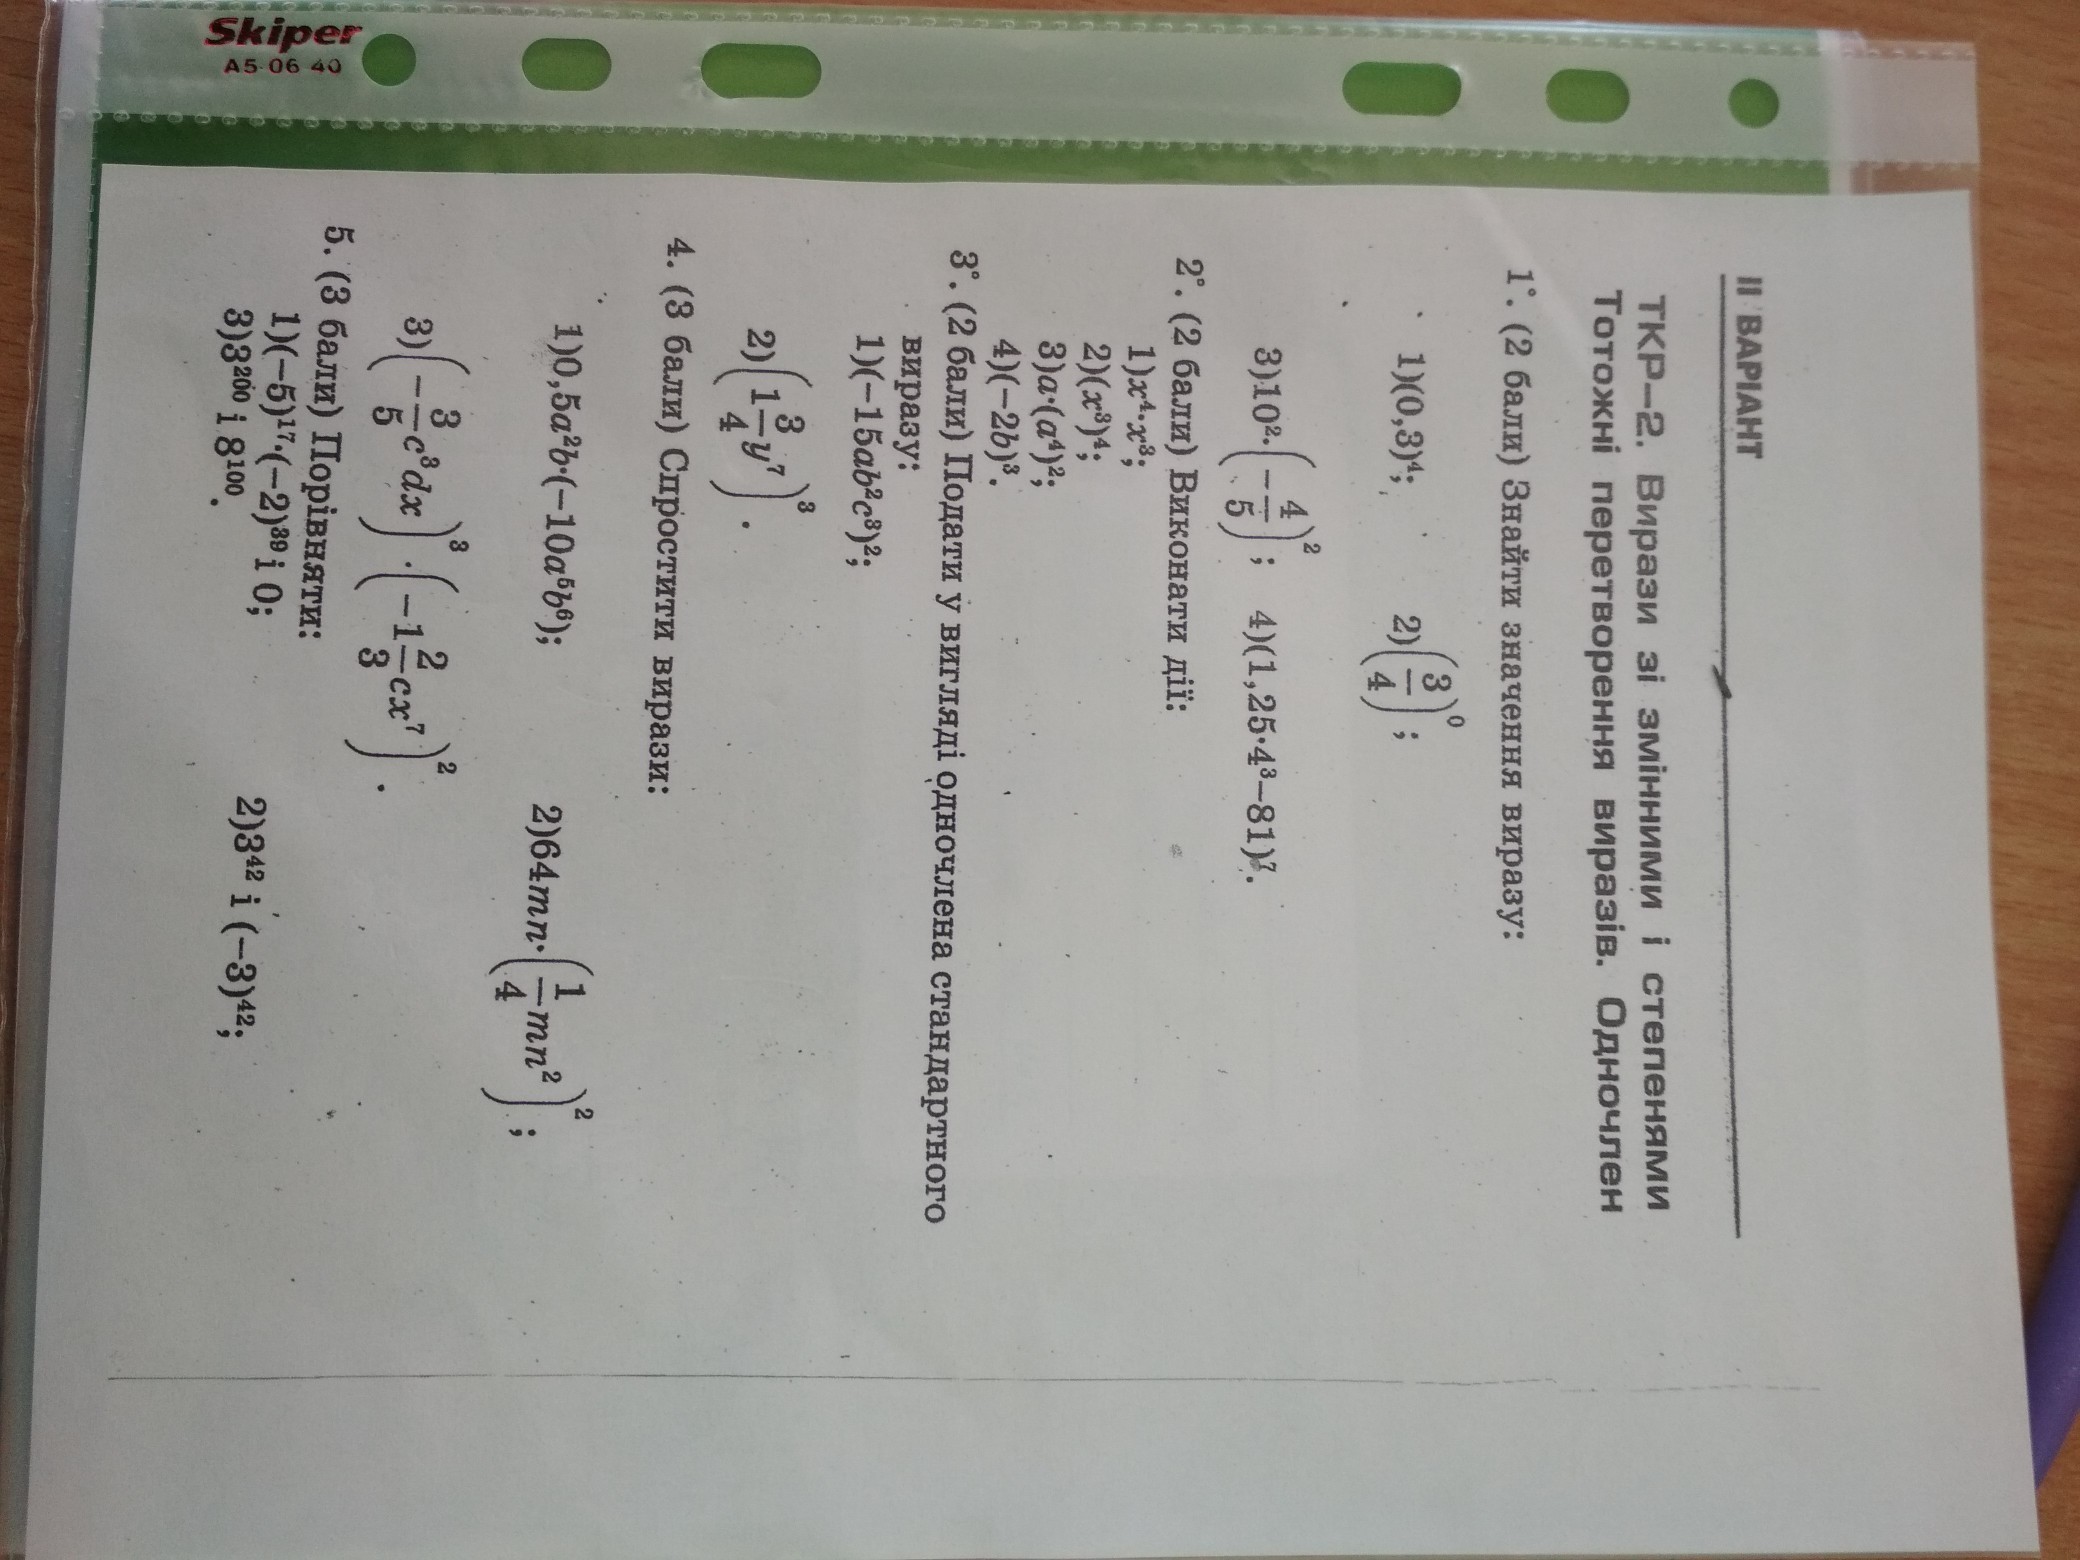 Skiper
A5 06 40
II ВАРІАНТ
ТКР–2. Вирази зі змінними і степенями
Тотожні перетворення виразів. Одночлен
1°. (2 бали) Знайти значення виразу:
1)(0,3)⁴; 2)(3/4)⁰;
3)10²·(−4/5)²; 4)(1,25·4³−81)⁷.
2°. (2 бали) Виконати дії:
1)x⁴·x³;
2)(x³)⁴;
3)a·(a⁴)²;
4)(−2b)³.
3°. (2 бали) Подати у вигляді одночлена стандартного
виразу:
1)(−15ab²c³)²;
2)(1 3/4 y⁷)³.
4. (3 бали) Спростити вирази:
1)0,5a²b·(−10a⁵b⁶); 2)64mn·(1/4 mn²)²;
3)(−3/5 c³dx)³·(−1 2/3 cx⁷)².
5. (3 бали) Порівняти:
1)(−5)¹⁷·(−2)³⁹ і 0; 2)3⁴² і (−3)⁴²;
3)3²⁰⁰ і 8¹⁰⁰.